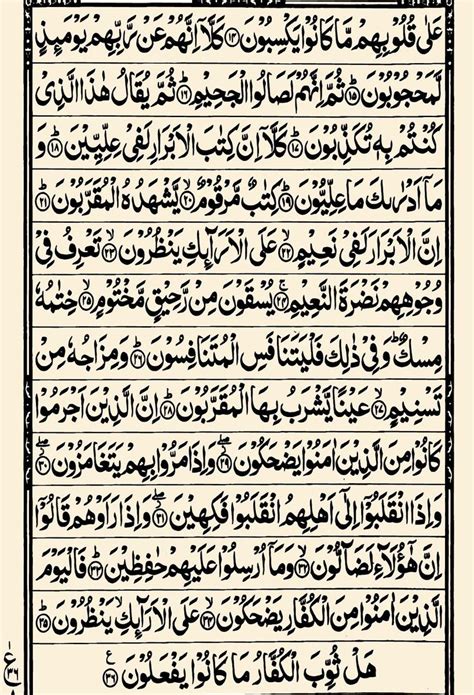 عَلٰى قُلُوْبِهِمْ مَّا كَانُوْا يَكْسِبُوْنَ ۝۱۴ كَلَّاۤ اِنَّهُمْ عَنْ رَّبِّهِمْ يَوْمَىِٕذٍ
لَّمَحْجُوْبُوْنَ ۝۱۵ ثُمَّ اِنَّهُمْ لَصَالُوا الْجَحِيْمِ ۝۱۶ ثُمَّ يُقَالُ هٰذَا الَّذِيْ
كُنْتُمْ بِهٖ تُكَذِّبُوْنَ ۝۱۷ كَلَّاۤ اِنَّ كِتٰبَ الْاَبْرَارِ لَفِيْ عِلِّيِّيْنَ ۝۱۸ وَ
مَاۤ اَدْرٰىكَ مَا عِلِّيُّوْنَ ۝۱۹ كِتٰبٌ مَّرْقُوْمٌ ۝۲۰ يَّشْهَدُهُ الْمُقَرَّبُوْنَ ۝۲۱
اِنَّ الْاَبْرَارَ لَفِيْ نَعِيْمٍ ۝۲۲ عَلَى الْاَرَآىِٕكِ يَنْظُرُوْنَ ۝۲۳ تَعْرِفُ فِيْ
وُجُوْهِهِمْ نَضْرَةَ النَّعِيْمِ ۝۲۴ يُسْقَوْنَ مِنْ رَّحِيْقٍ مَّخْتُوْمٍ ۝۲۵ خِتٰمُهٗ
مِسْكٌ ؕ وَفِيْ ذٰلِكَ فَلْيَتَنَافَسِ الْمُتَنَافِسُوْنَ ۝۲۶ وَمِزَاجُهٗ مِنْ
تَسْنِيْمٍ ۝۲۷ عَيْنًا يَّشْرَبُ بِهَا الْمُقَرَّبُوْنَ ۝۲۸ اِنَّ الَّذِيْنَ اَجْرَمُوْا
كَانُوْا مِنَ الَّذِيْنَ اٰمَنُوْا يَضْحَكُوْنَ ۝۲۹ وَاِذَا مَرُّوْا بِهِمْ يَتَغَامَزُوْنَ ۝۳۰
وَاِذَا انْقَلَبُوْۤا اِلٰۤى اَهْلِهِمُ انْقَلَبُوْا فَكِهِيْنَ ۝۳۱ وَاِذَا رَاَوْهُمْ قَالُوْۤا
اِنَّ هٰۤؤُلَآءِ لَضَآلُّوْنَ ۝۳۲ وَمَاۤ اُرْسِلُوْا عَلَيْهِمْ حٰفِظِيْنَ ۝۳۳ فَالْيَوْمَ
الَّذِيْنَ اٰمَنُوْا مِنَ الْكُفَّارِ يَضْحَكُوْنَ ۝۳۴ عَلَى الْاَرَآىِٕكِ يَنْظُرُوْنَ ۝۳۵
هَلْ ثُوِّبَ الْكُفَّارُ مَا كَانُوْا يَفْعَلُوْنَ ۝۳۶